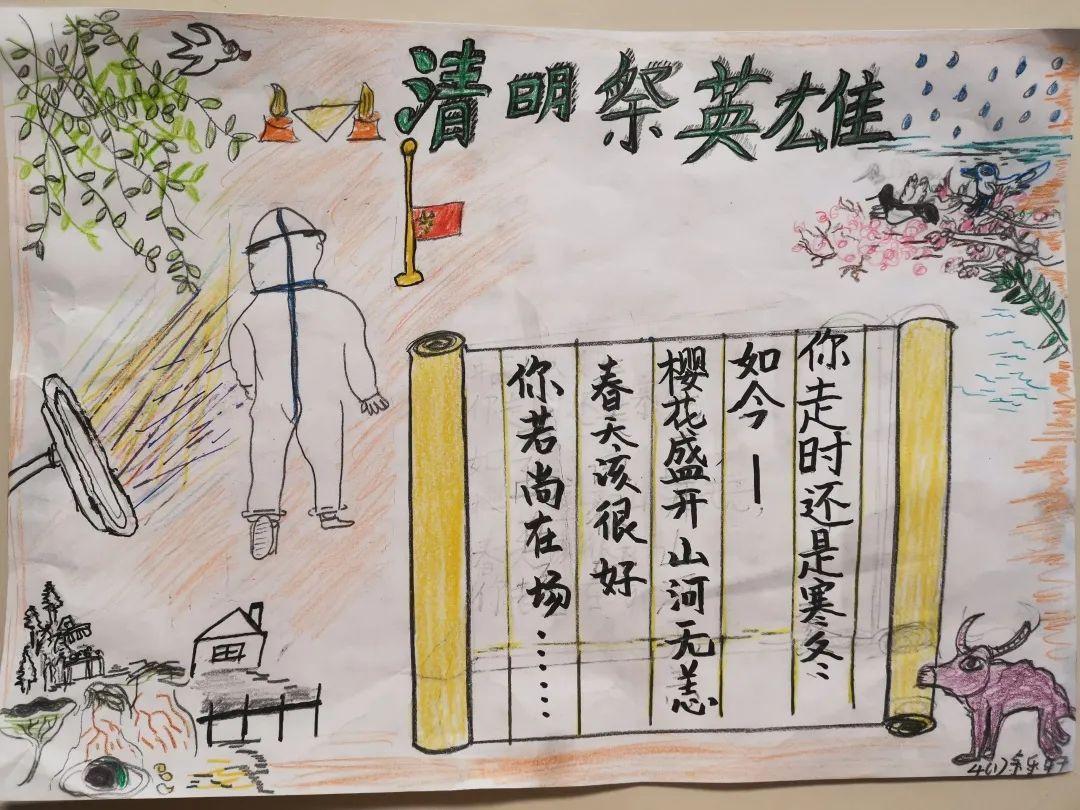 清明祭英雄
你走时还是寒冬
如今—
樱花盛开山河无恙
春天该很好
你若尚在场……
4(1)